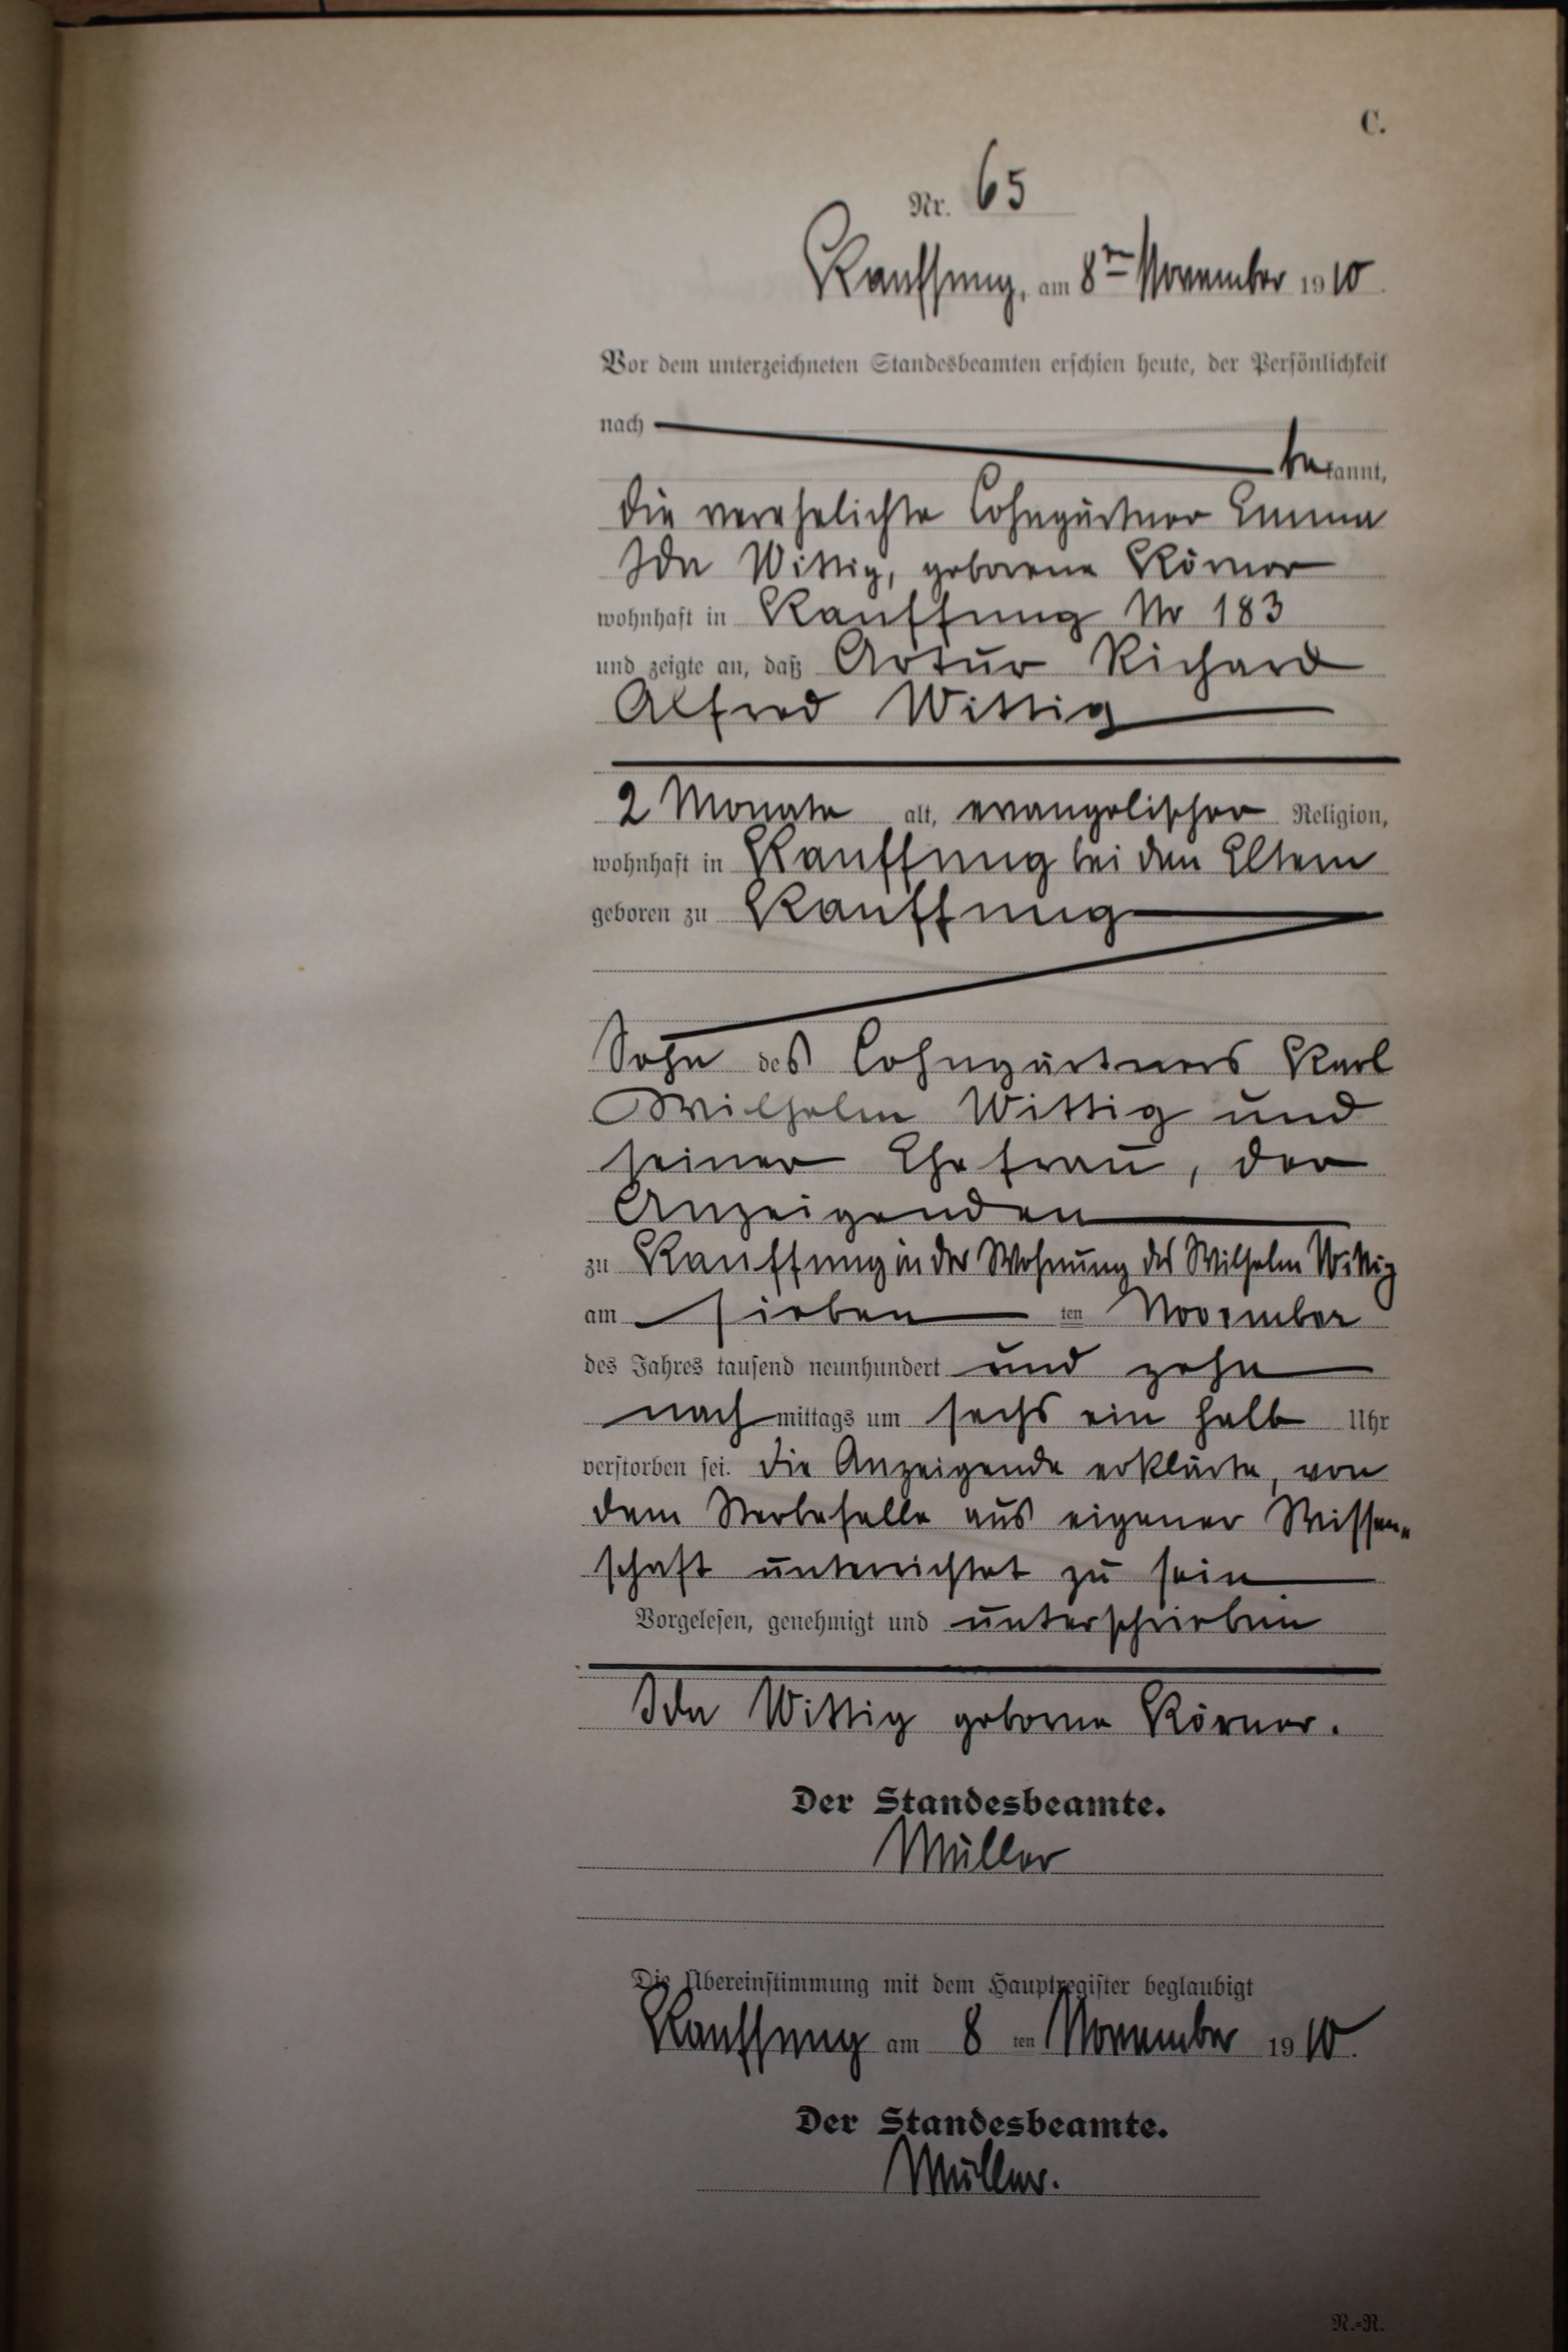 C.
Nr. 65
Kauffung, am 8ten November 1910.
Vor dem unterzeichneten Standesbeamten erschien heute, der Persönlichkeit
nach
bekannt,
die verehelichte Lohngärtner Emma
Ida Wittig, geborene Körner
wohnhaft in Kauffung Nr 183
und zeigte an, daß Artur Richard
Alfred Wittig
2 Monate alt, evangelischer Religion,
wohnhaft in Kauffung bei den Eltern
geboren zu Kauffung
Sohn des Lohngärtners Karl
Wilhelm Wittig und
seiner Ehefrau, der
Anzeigenden
zu Kauffung in der Wohnung des Wilhelm Wittig
am sieben ten November
des Jahres tausend neunhundert und zehn
nachmittags um sechs ein halb Uhr
verstorben sei. Die Anzeigende erklärte, von
dem Sterbefalle aus eigener Wissen-
schaft unterrichtet zu sein
Vorgelesen, genehmigt und unterschrieben
Ida Wittig geborne Körner.
Der Standesbeamte.
Müller
Die Übereinstimmung mit dem Hauptregister beglaubigt
Kauffung am 8 ten November 1910.
Der Standesbeamte.
Müller.
N.-N.